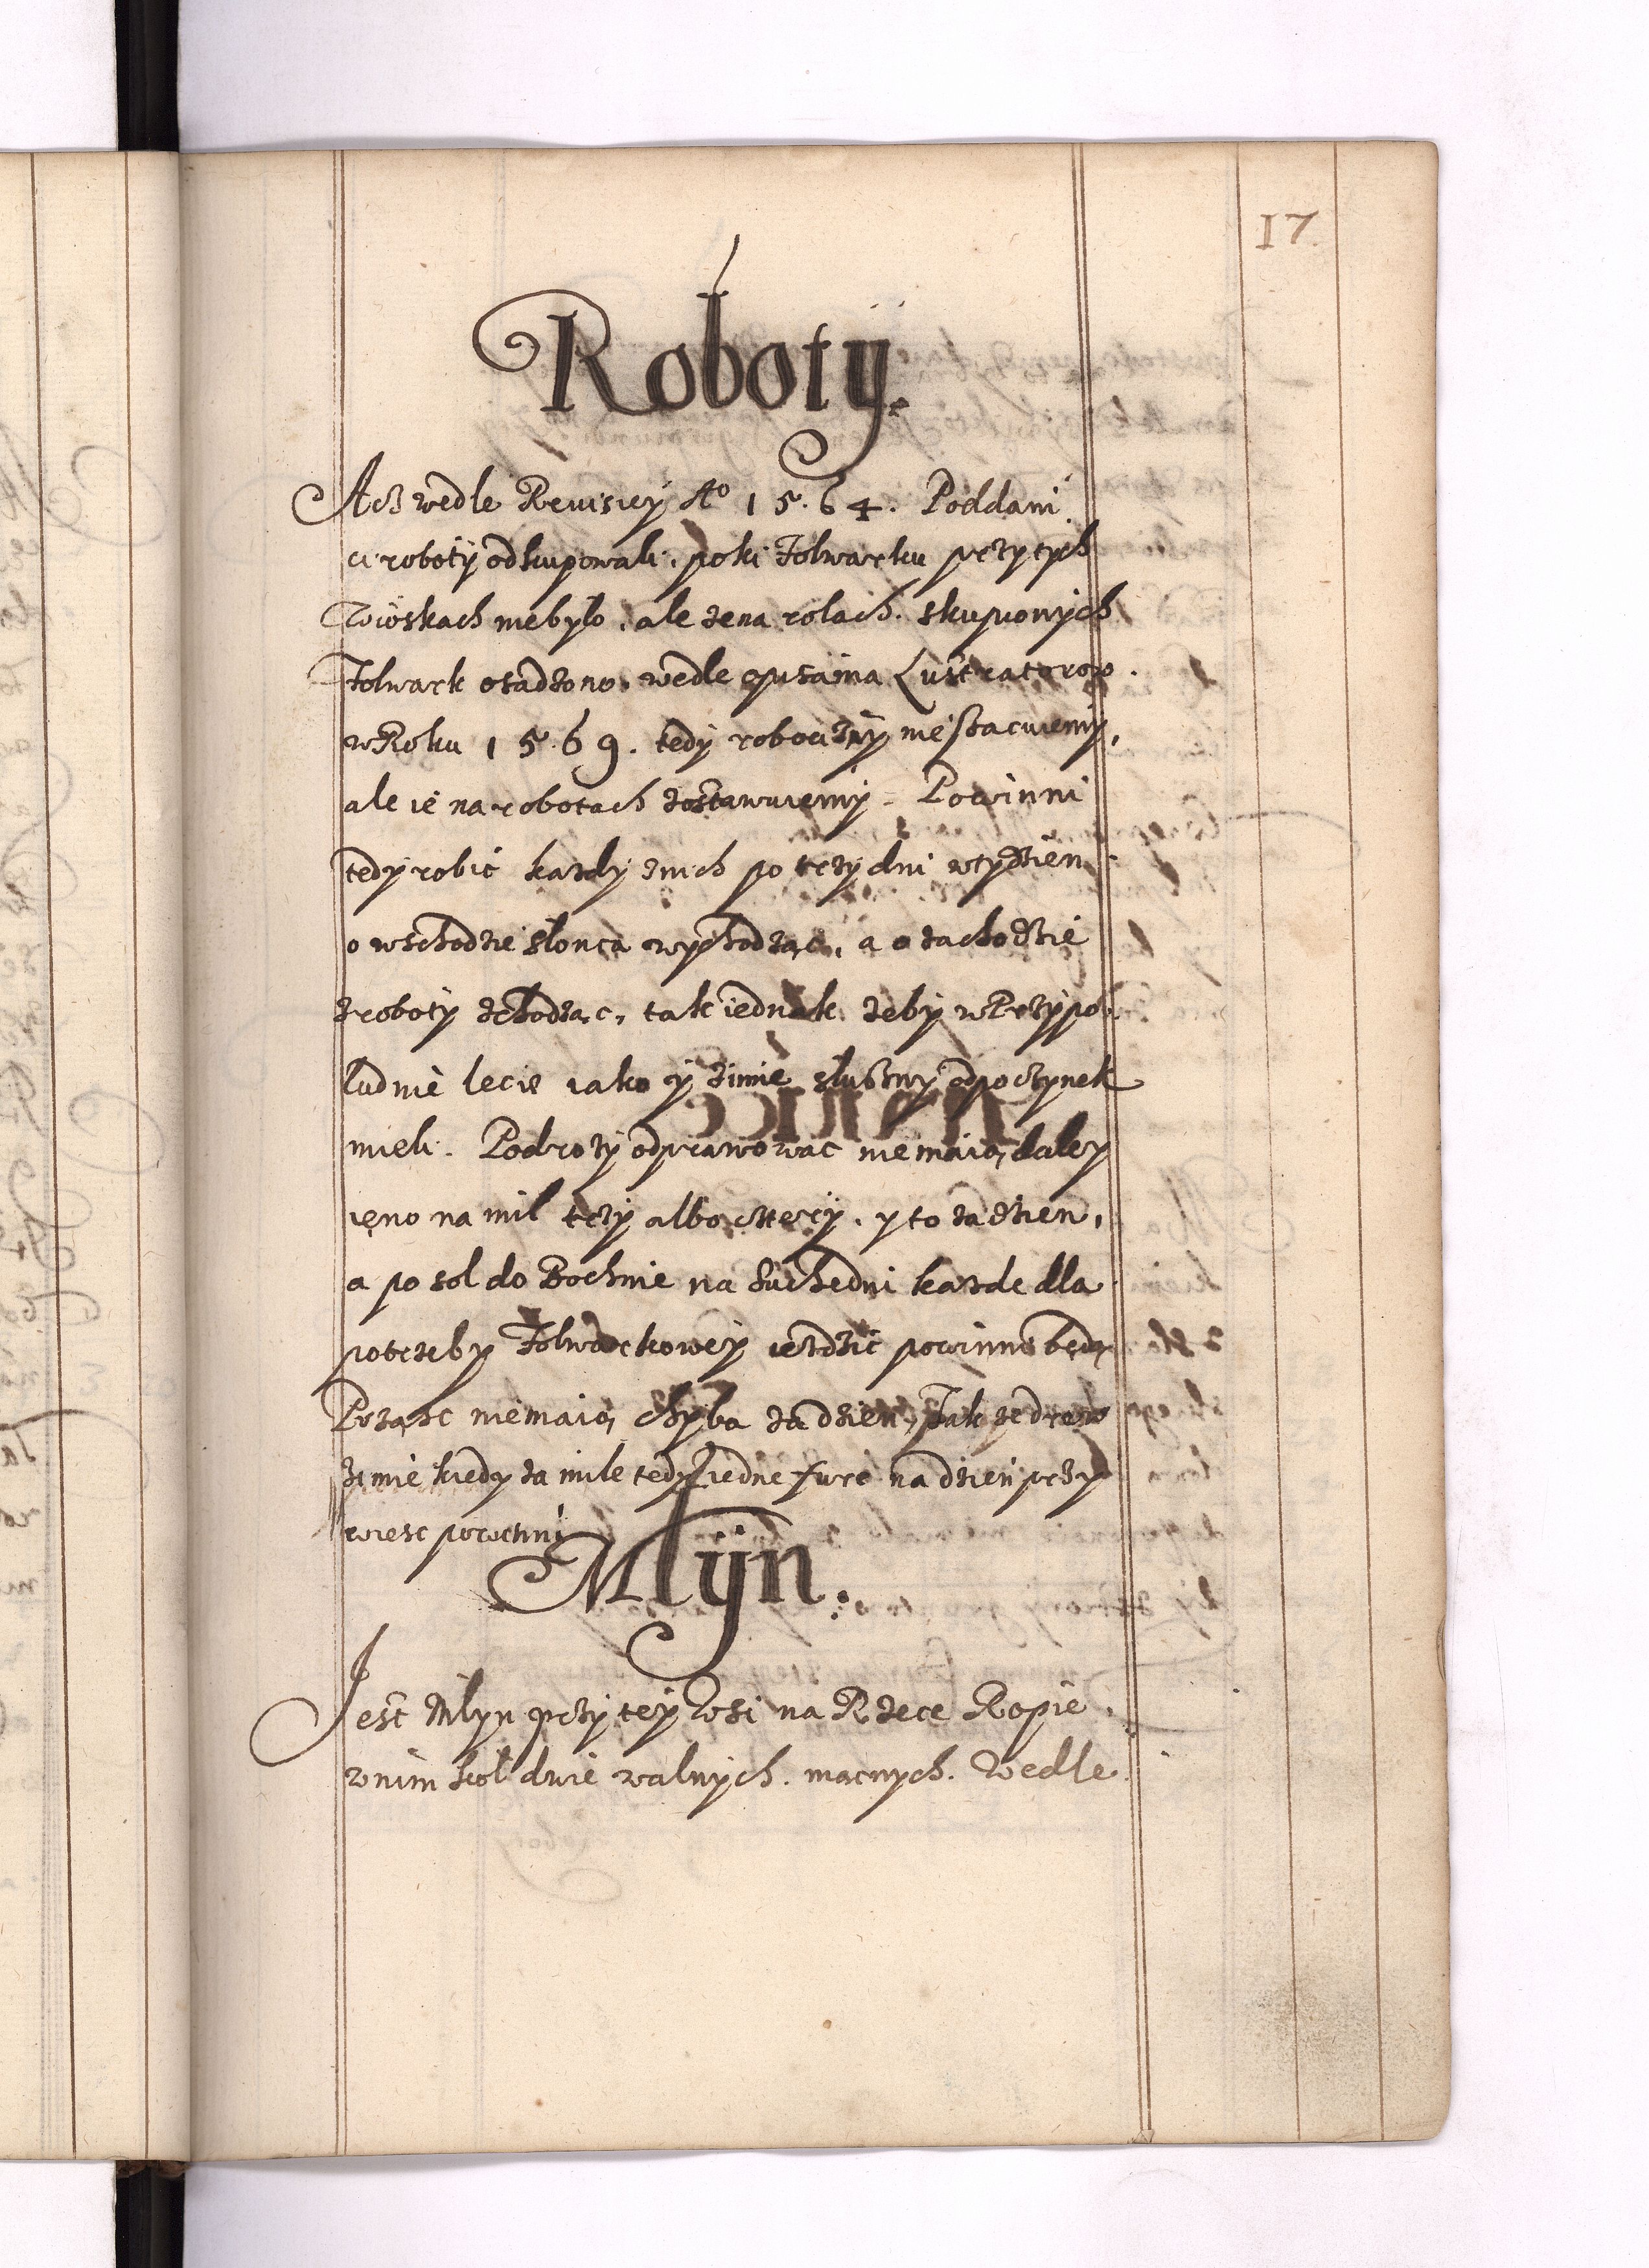 17
Roboty.
Acz wedle Rewisiey Aº 1564. Poddani
ci roboty odkupowali, poki Folwarku przy tych
Wioskach niebyło, ale że na rolach skupionych
Folwark osadzono, wedle opisania Lustratorow
w Roku 1569. tedy robocizny nie szacuiemy,
ale ie na robotach zostawuiemy. Powinni
tedy robić kazdy z nich po trzy dni w tydzien
o wschodzie słonca wychodząc, a o zachodzie
z roboty schodząc, tak iednak żeby w Przypo
ludnie lecie iako y zimie słuszny odpoczynek
mieli. Podrozy odprawować nie maią daley
ieno na mil trzy albo cztery, y to za dzien,
a po sol do Bochnie na suchedni kazde dla
potrzeby Folwarkowey iezdzić powinni będą
Prząsc niemaią, chyba za dzien, Także drew
zimie kiedy za mile tedy iedne fure na dzien przy
wiesc powinni
Młyn.
Jest Młyn przy tey Wsi na Rzece Ropie,
w nim koł dwie walnych, mącnych. Wedle